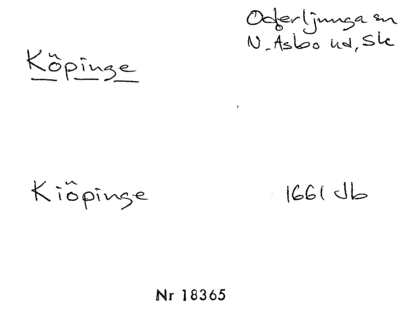 Köpinge
Oderljunga sn
N. Åsbo hd, Sk
Kiöpinge 1661 Jb
Nr 18365